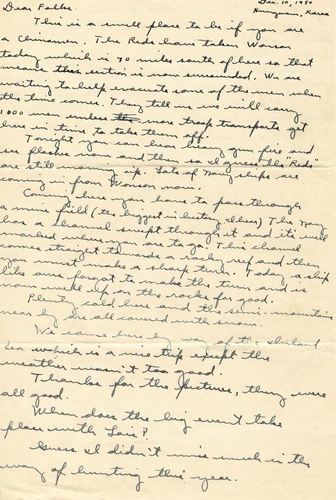 Dec. 10, 1950
Hungnam, Korea
Dear Folks.
This is a swell place to be if you are
a Chinaman. The Reds have taken Wonson
today which is 70 miles south of here so that
means this section is now surrounded. We are
waiting to help evacuate some of the men when
the time comes. They tell us we will carry
1000 men unless more troop transports get
here in time to take them off.
Tonight you can hear heavy gun fire and
see flashes now and then so I guess the "Reds"
are still moving up. Lots of Navy ships are
coming in from Wonson now.
Coming here you have to pass through
a mine field (the biggest in history I hear) The Navy
has a channel swept through it and it's well
marked where you are to go. This channel
comes straight towards a rocky reef and then
you must make a sharp turn. Today a ship
like ours forgot to make the turn and is
now well up on the rocks for good.
Plenty cold here and the semi-mountains
near by are all covered with snow.
We came here by way of the inland
sea which is a nice trip except the
weather wasn't too good.
Thanks for the pictures, they were
all good.
When does the big event take
place with Lois?
Guess I didn't miss much in the
way of hunting this year.